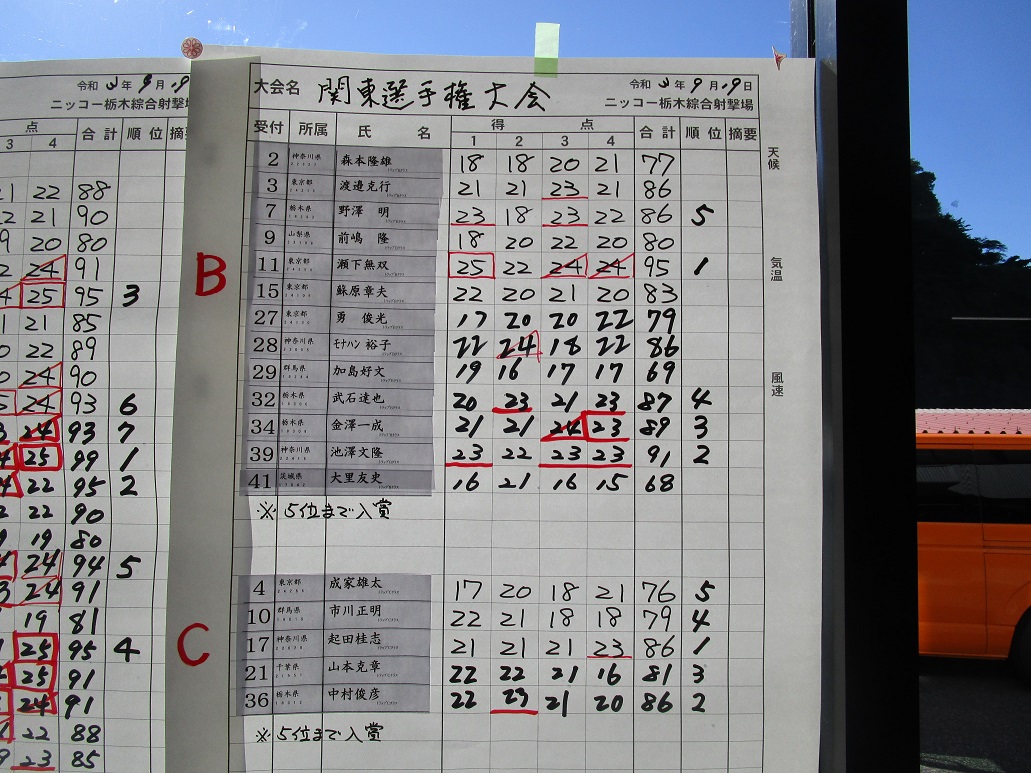 令和 3 年 9 月 19
ニッコー栃木綜合射撃場
点
3 4 合計 順位 摘要
22 88
21 90
20 80
24 91
25 95 3
21 85
22 89
24 90
24 93 6
24 93 7
25 99 1
22 95 2
22 90
19 80
24 94 5
24 91
19 81
25 95 4
25 91
24 91
22 88
23 85
大会名 関東選手権大会 令和 3 年 9 月 19 日
ニッコー栃木綜合射撃場
受付 所属 氏 名 得 点 合計 順位 摘要
1 2 3 4
天候
気温
風速
B
2 神奈川県 森本隆雄 18 18 20 21 77
3 東京都 渡邉克行 21 21 23 21 86
7 栃木県 野澤 明 23 18 23 22 86 5
9 山梨県 前嶋 隆 18 20 22 20 80
11 東京都 瀬下無双 25 22 24 24 95 1
15 東京都 蘇原章夫 22 20 21 20 83
27 東京都 勇 俊光 17 20 20 22 79
28 神奈川県 モナハン 裕子 22 24 18 22 86
29 群馬県 加島好文 19 16 17 17 69
32 栃木県 武石達也 20 23 21 23 87 4
34 栃木県 金澤一成 21 21 24 23 89 3
39 神奈川県 池澤文隆 23 22 23 23 91 2
41 茨城県 大里友史 16 21 16 15 68
※ 5位まで入賞
C
4 東京都 成家雄太 17 20 18 21 76 5
10 群馬県 市川正明 22 21 18 18 79 4
17 神奈川県 起田桂志 21 21 21 23 86 1
21 千葉県 山本克章 22 22 21 16 81 3
36 栃木県 中村俊彦 22 23 21 20 86 2
※ 5位まで入賞